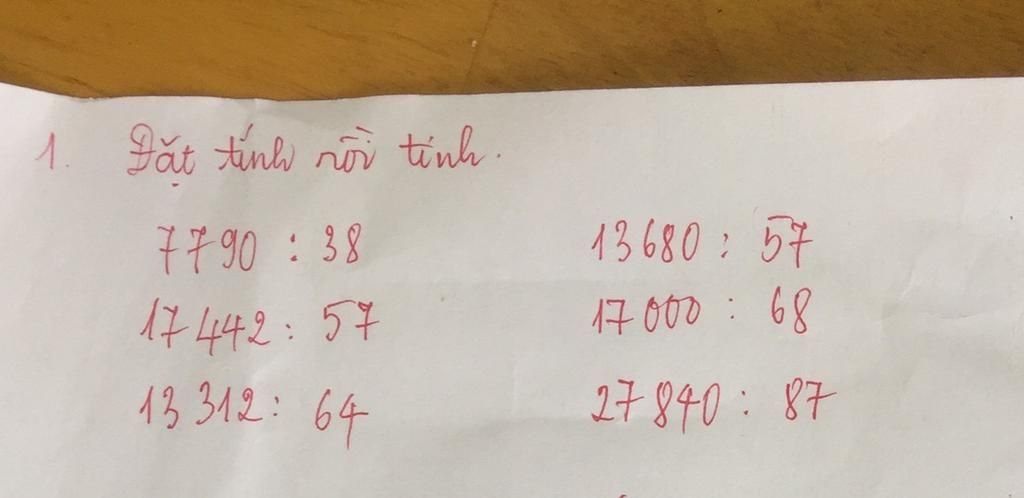 1. Đặt tính rồi tính.
7790 : 38 13680 : 57
17442 : 57 17000 : 68
13312 : 64 27840 : 87